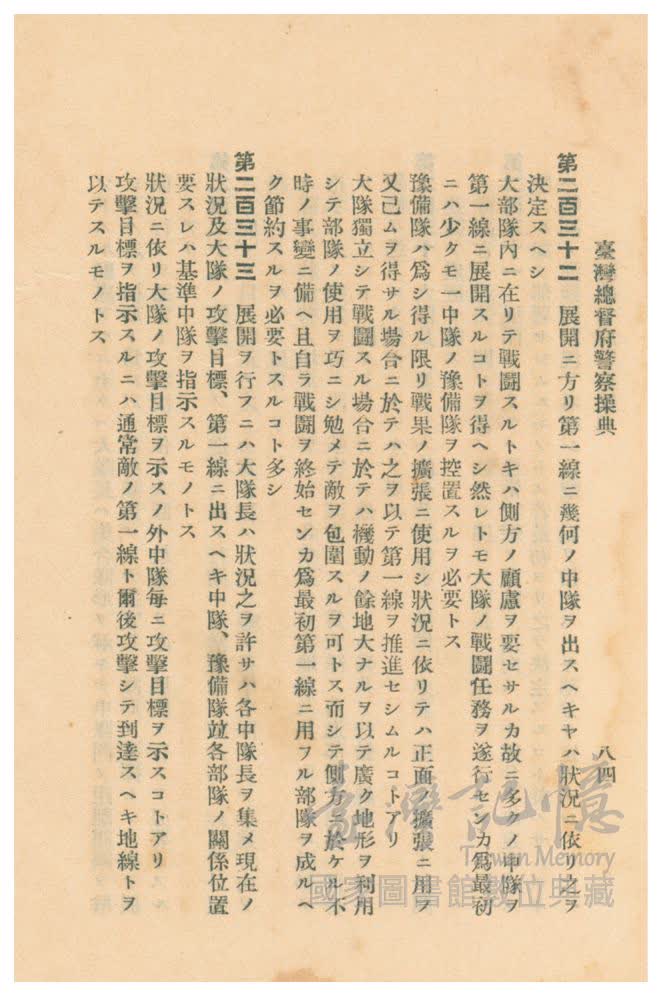 臺灣總督府警察操典
八四
第二百三十二　展開ニ方リ第一線ニ幾何ノ中隊ヲ出スヘキヤハ狀況ニ依リ之ヲ
決定スヘシ
大部隊內ニ在リテ戰鬪スルトキハ側方ノ顧慮ヲ要セサルカ故ニ多クノ中隊ヲ
第一線ニ展開スルコトヲ得ヘシ然レトモ大隊ノ戰鬪任務ヲ遂行センカ爲最初
ニハ少クモ一中隊ノ豫備隊ヲ控置スルヲ必要トス
豫備隊ハ爲シ得ル限リ戰果ノ擴張ニ使用シ狀況ニ依リテハ正面ノ擴張ニ用ヲ
又已ムヲ得サル場合ニ於テハ之ヲ以テ第一線ヲ推進セシムルコトアリ
大隊獨立シテ戰鬪スル場合ニ於テハ機動ノ餘地大ナルヲ以テ廣ク地形ヲ利用
シテ部隊ノ使用ヲ巧ニシ勉メテ敵ヲ包圍スルヲ可トス而シテ側方ニ於ケル不
時ノ事變ニ備ヘ且自ラ戰鬪ヲ終始センカ爲最初第一線ニ用フル部隊ヲ成ルヘ
ク節約スルヲ必要トスルコト多シ
第二百三十三　展開ヲ行フニハ大隊長ハ狀況之ヲ許サハ各中隊長ヲ集メ現在ノ
狀況及大隊ノ攻擊目標、第一線ニ出スヘキ中隊、豫備隊竝各部隊ノ關係位置
要スレハ基準中隊ヲ指示スルモノトス
狀況ニ依リ大隊ノ攻擊目標ヲ示スノ外中隊每ニ攻擊目標ヲ示スコトアリ
攻擊目標ヲ指示スルニハ通常敵ノ第一線ト爾後攻擊シテ到達スヘキ地線トヲ
以テスルモノトス
臺灣記憶
Taiwan Memory
國家圖書館數位典藏